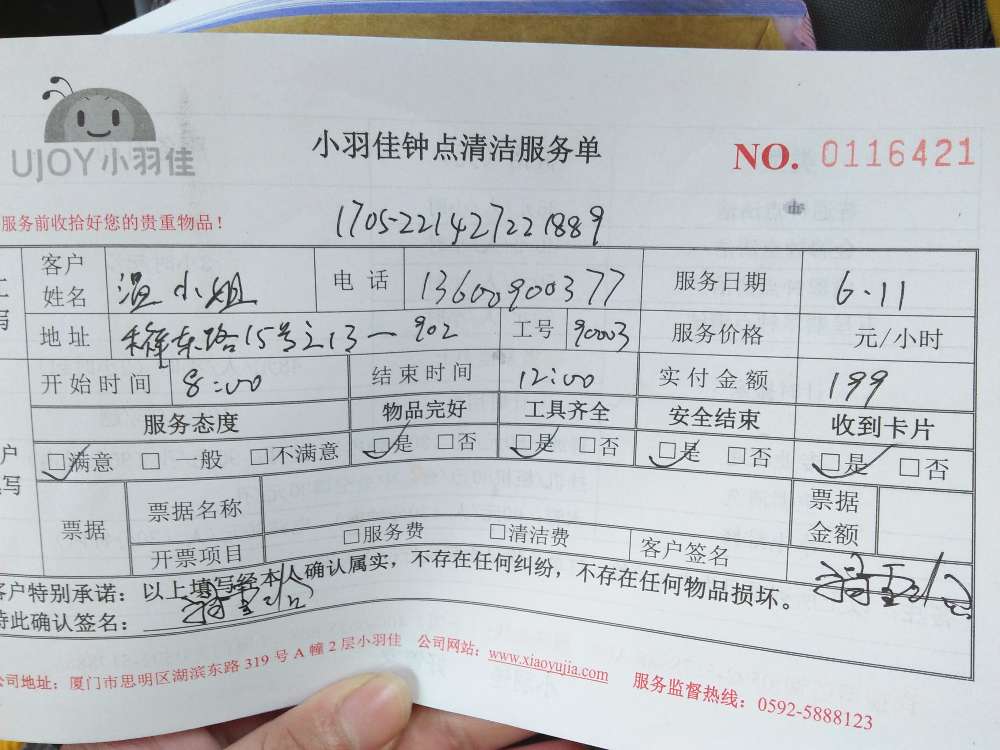 UJOY小羽佳
小羽佳钟点清洁服务单
NO. 0116421
服务前收拾好您的贵重物品！
1705221427221889
客户姓名 温小姐 电话 13600900377 服务日期 6.11
地址 东路15号之13一902 工号 90003 服务价格 元/小时
开始时间 8:00 结束时间 12:00 实付金额 199
服务态度 物品完好 工具齐全 安全结束 收到卡片
满意 一般 不满意 是 否 是 否 是 否 是 否
票据 票据名称 票据金额
开票项目 服务费 清洁费 客户签名
客户特别承诺：以上填写经本人确认属实，不存在任何纠纷，不存在任何物品损坏。
特此确认签名：
公司地址：厦门市思明区湖滨东路 319 号 A 幢 2 层小羽佳 公司网站：www.xiaoyujia.com 服务监督热线：0592-5888123